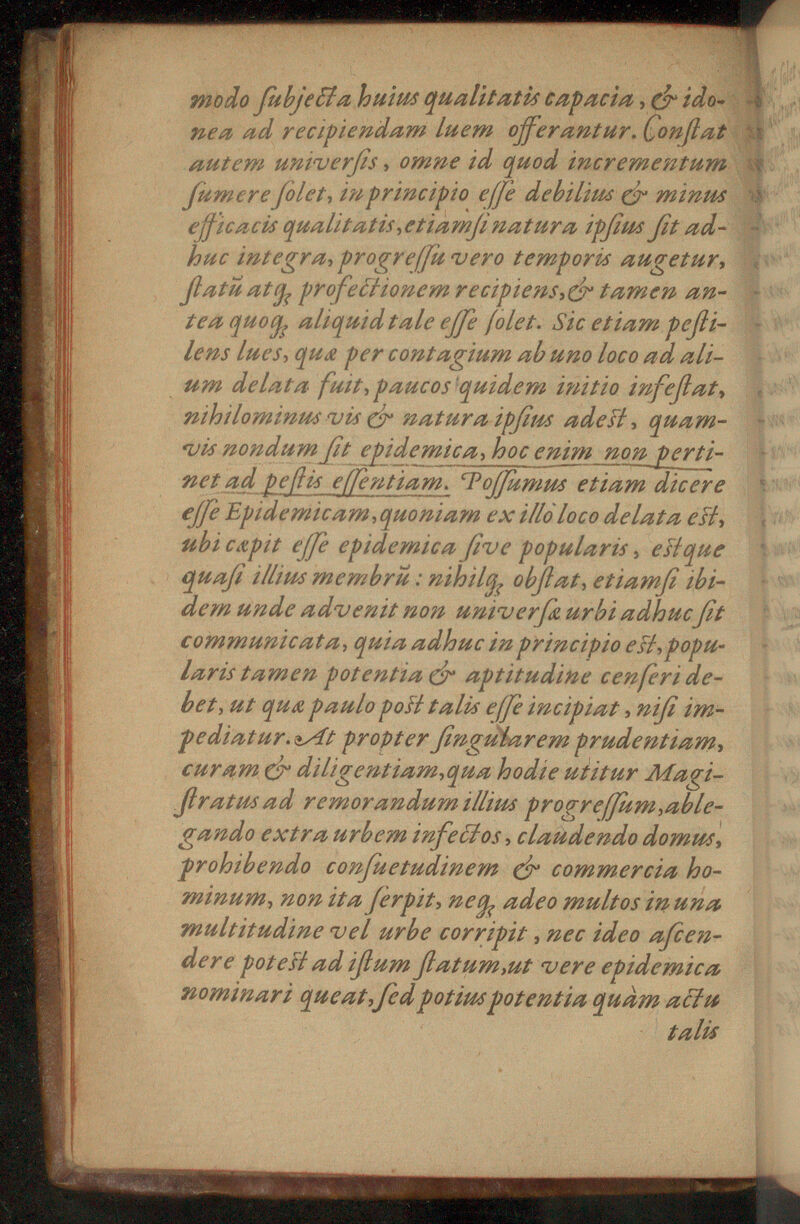 modo ſubjecta huius qualitatis capacia, & ido-
nea ad recipiendam luem offerantur. Conſtat
autem univerſis, omne id quod incrementum
ſumere ſolet, in principio eſſe debilius & minus
efficacis qualitatis, etiamſi natura ipſius ſit ad-
huc integra, progreſſu vero temporis augetur,
ſtatū atq; profectionem recipiens, & tamen an-
tea quoq; aliquid tale eſſe ſolet. Sic etiam peſti-
lens lues, quæ per contagium ab uno loco ad ali-
um delata fuit, paucos quidem initio infeſtat,
nihilominus vis & natura ipſius adest, quam-
vis nondum ſit epidemica, hoc enim non perti-
net ad peſtis eſſentiam. Poſſumus etiam dicere
eſſe Epidemicam, quoniam ex illo loco delata est,
ubi cæpit eſſe epidemica ſive popularis, estque
quaſi illius membrū: nihilq; obſtat, etiamſi ibi-
dem unde advenit non univerſæ urbi adhuc ſit
communicata, quia adhuc in principio est, popu-
laris tamen potentia & aptitudine cenſeri de-
bet, ut quæ paulo post talis eſſe incipiat, niſi im-
pediatur. At propter ſingularem prudentiam,
curam & diligentiam, qua hodie utitur Magi-
ſtratus ad remorandum illius progreſſum, able-
gando extra urbem infectos, claudendo domus,
prohibendo conſuetudinem & commercia ho-
minum, non ita ſerpit, neq; adeo multos in una
multitudine vel urbe corripit, nec ideo aſcen-
dere potest ad iſtum ſtatum, ut vere epidemica
nominari queat, ſed potius potentia quàm actu
talis